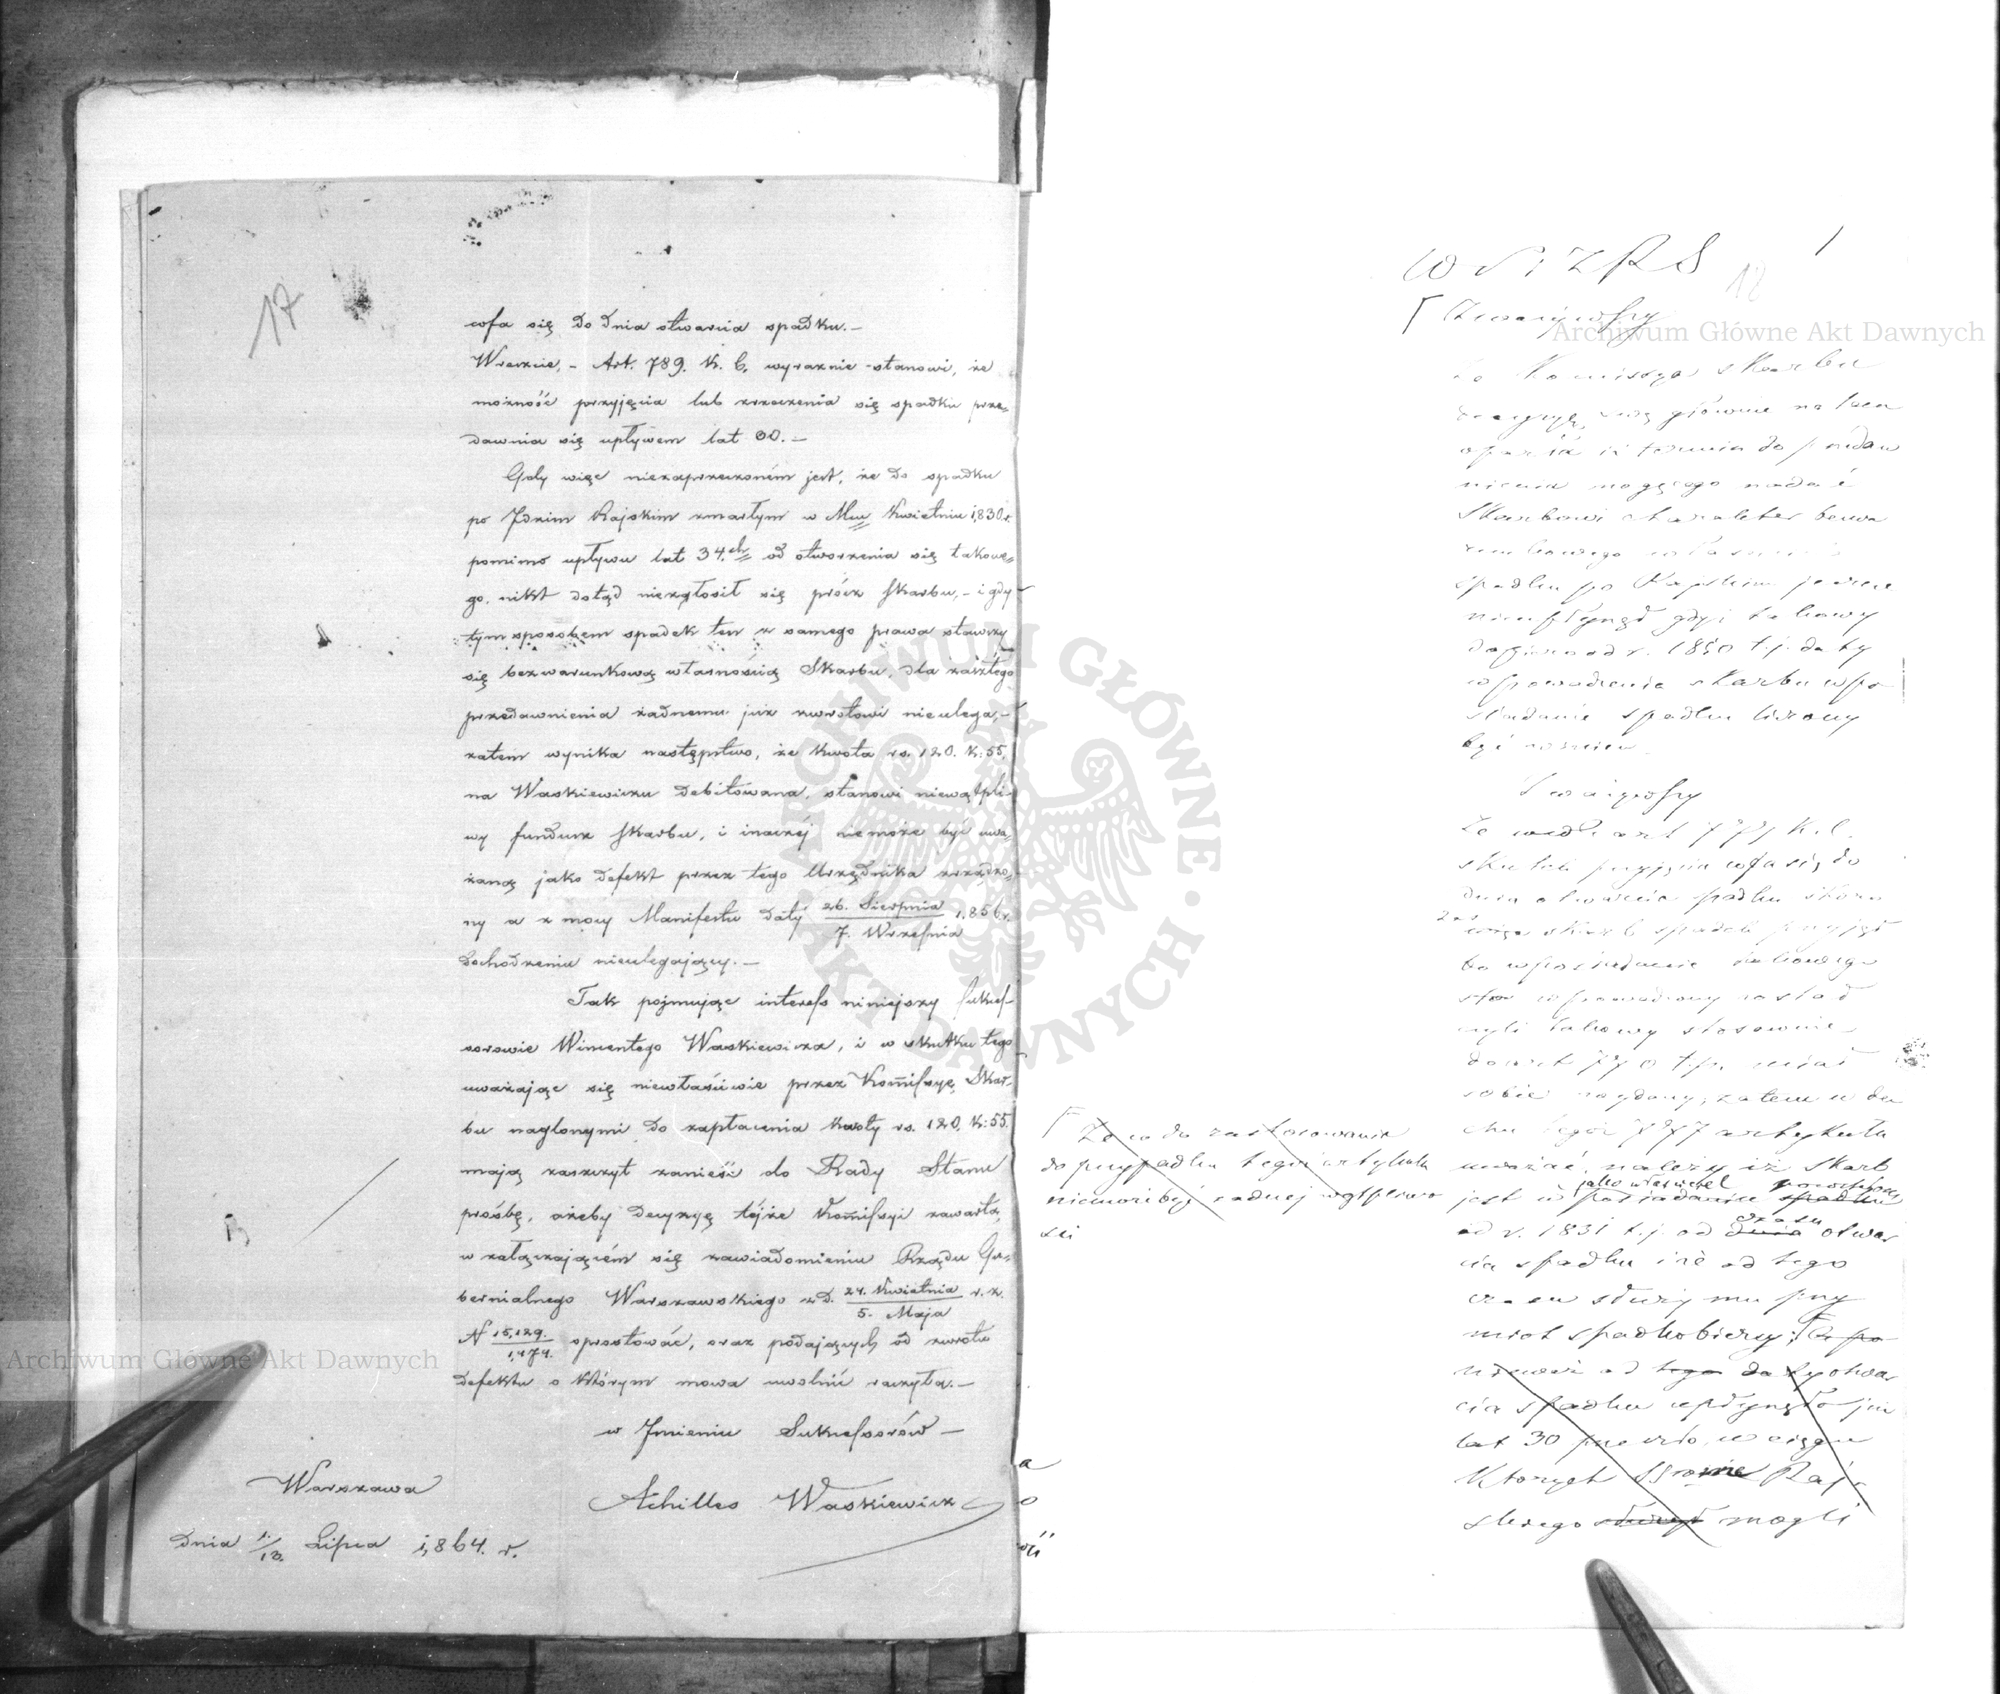 17
cofa się do dnia otwarcia spadku.–
Wreszcie,– Art. 789. K. C. wyraznie stanowi, że
możność przyjęcia lub zrzeczenia się spadku prze-
dawnia się upływem lat 30.–
Gdy więc niezaprzeczoném jest, że do spadku
po Idzim Rajskim zmarłym w Mcu Kwietniu 1,830 r.
pomimo upływu lat 34.ch od otworzenia się takowe-
go, nikt dotąd niezgłosił się prócz Skarbu,– i gdy
tym sposobem spadek ten z samego prawa stawszy
się bezwarunkową własnością Skarbu, dla zaszłego
przedawnienia żadnemu już zwrotowi nieulega,–
zatem wynika następstwo, że kwota rs. 120. k: 55.
na Waskiewiczu debitowana, stanowi niewątpli-
wy fundusz Skarbu, i inaczéj niemoże być uwa-
żaną jako defekt przez tego Urzędnika zrządzo-
ny a z mocy Manifestu daty 26. Sierpnia / 7. Września 1,856 r.
dochodzeniu nieulegający.–
Tak pojmując interess niniejszy sukces-
sorowie Wincentego Waskiewicza, i w skutku tego
uważając się niewłaściwie przez Kommissyę Skar-
bu naglonymi do zapłacenia kwoty rs. 120. k: 55.
mają zaszczyt zanieść do Rady Stanu
prośbę, ażeby decyzyę téjże Kommissyi zawartą
w załączającém się zawiadomieniu Rządu Gu-
bernialnego Warszawskiego z d. 24. Kwietnia / 5. Maja r. z.
N 15,129. / 1,474. sprostować, oraz podających od zwrotu
defektu o którym mowa uwolnić raczyła.–
w Imieniu Sukcessorów –
Achilles Waskiewicz
Warszawa
dnia 1./13. Lipca 1,864. r.
18
Zważywszy
że Komissya Skarbu
decyzyę swą głównie na tem
oparła iż termin do przedaw
nienia mogącego nadać
Skarbowi charakter bezwa
runkowego
spadku po Rajskim jeszcze
nieupłynął gdyż takowy
dopiero od r. 1850 t. j. daty
wprowadzenia Skarbu w po
siadanie spadku liczony
być
Zważywszy
że wedle art 777 K. C.
skutek przyjęcia cofa się do
dnia otwarcia spadku skoro
zaś
więc skarb spadek przyjął
bo w posiadanie takowego
wprowadzony został
czyli takowy stosownie
do art 770 t. p. miał
sobie zatem w du
chu tegoż 777 artykułu
uważać należy iż Skarb
jako właściciel
jest w posiadaniu spadku
czasu
od r. 1831 t. j. od dnia otwar
cia spadku i że od tego
czasu służy mu przy
miot spadkobiercy;
nieważ od tego daty otwar
cia spadku upłynęło już
lat 30 w ciągu
których Raj-
skiego mogli
Że co do zastosowania
do przypadku tegoż artykułu
niemoże być żadnej wątpliwo
ści
Archiwum Główne Akt Dawnych
Archiwum Główne Akt Dawnych
ARCHIWUM GŁÓWNE • AKT DAWNYCH •